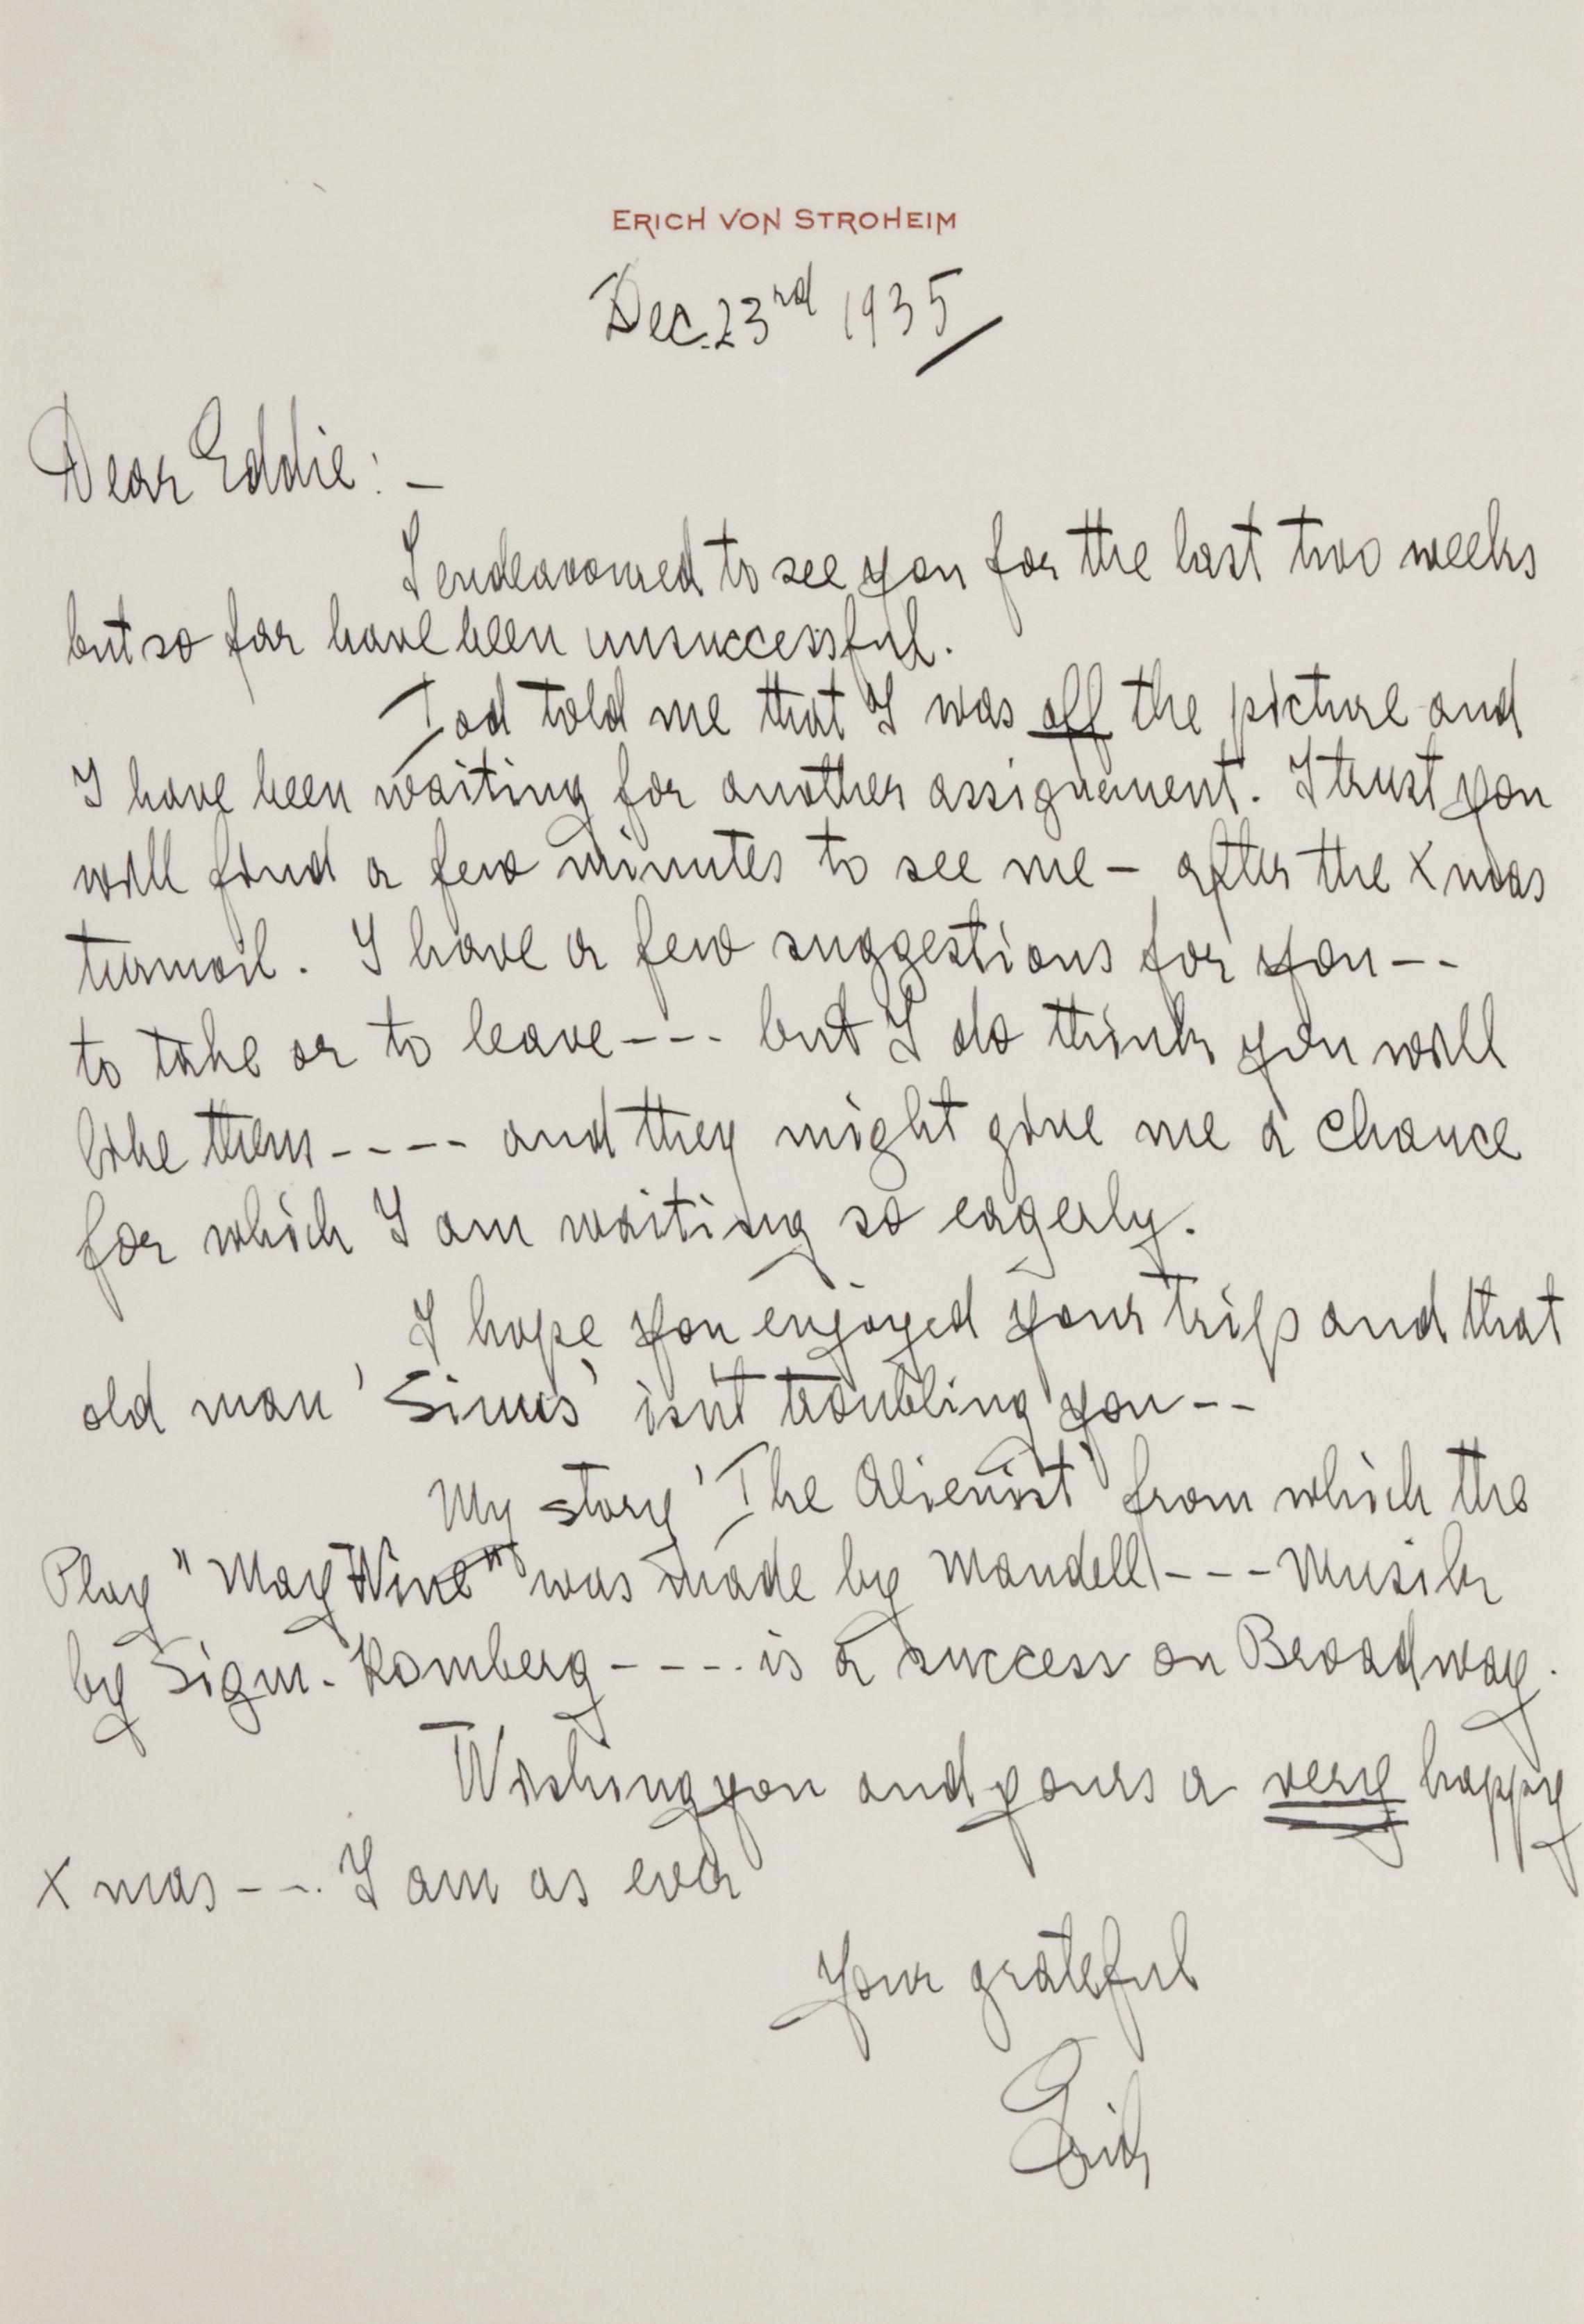 ERICH VON STROHEIM
Dec. 23rd 1935
Dear Eddie: -
I endeavoured to see you for the last two weeks
but so far have been unsuccessful.
Tod told me that I was off the picture and
I have been waiting for another assignement. I trust you
will find a few minutes to see me - after the Xmas
turmoil. I have a few suggestions for you --
to take or to leave --- but I do think you will
like them ---- and they might give me a chance
for which I am waiting so eagerly.
I hope you enjoyed your trip and that
old man 'Sinus' isn't troubling you --
My story 'The Alienist' from which the
Play "May Wine" was made by Mandell --- Musik
by Sigm. Romberg ---- is a success on Broadway.
Wishing you and yours a very happy
Xmas --- I am as ever
Your grateful
Erich